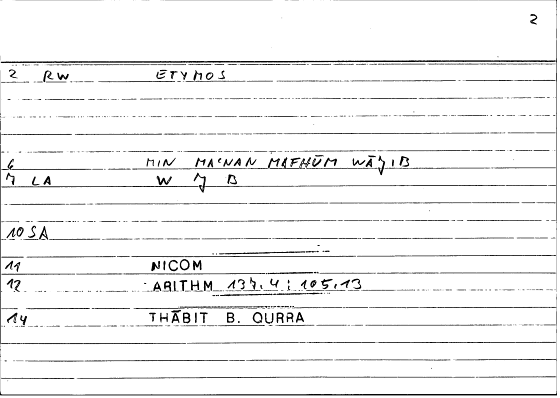 2
2 RW ETYMOS
6 MIN MA'NAN MAFHŪM WĀǰIB
7 LA W ǰ B
10 SA
11 NICOM
12 ARITHM 137.4 : 105.13
14 THĀBIT B. QURRA